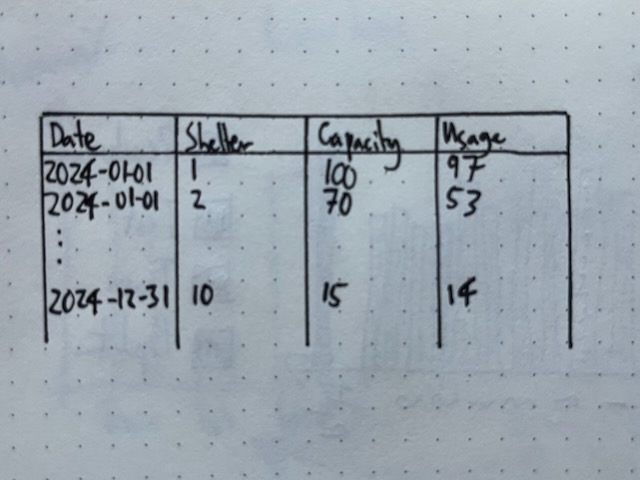 Date Shelter Capacity Usage
2024-01-01 1 100 97
2024-01-01 2 70 53
⋮
2024-12-31 10 15 14